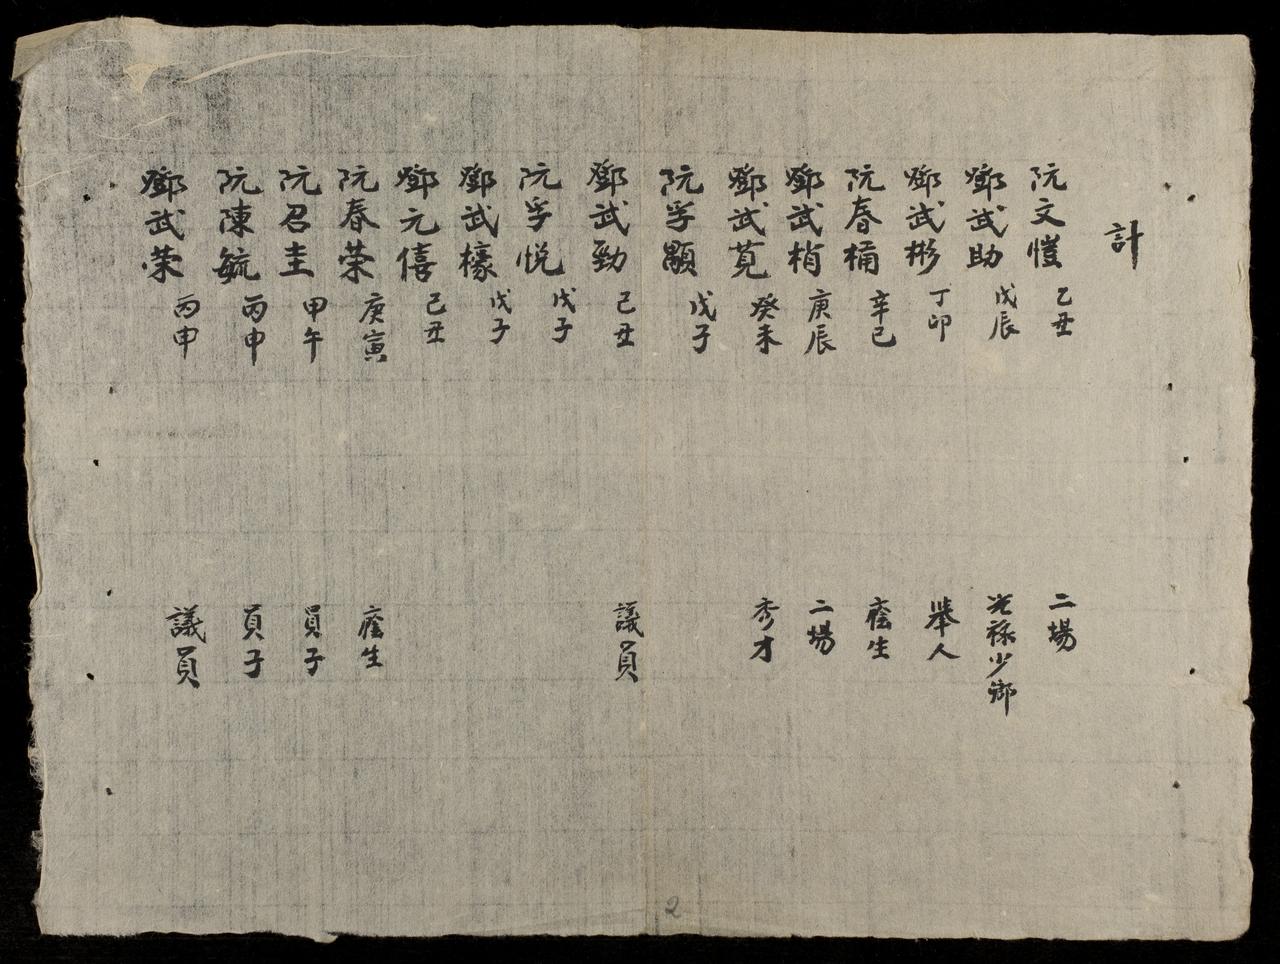 計
阮文愷 乙丑 二場
鄧武助 戊辰 光祿少卿
鄧武彬 丁卯 舉人
阮春桶 辛巳 廕生
鄧武梢 庚辰 二場
鄧武莧 癸未 秀才
阮孚顒 戊子
鄧武勁 己丑 議員
阮孚悦 戊子
鄧武檺 戊子
鄧元僖 己丑
阮春荣 庚寅 廕生
阮召圭 甲午 員子
阮陳毓 丙申 員子
鄧武荣 丙申 議員
2